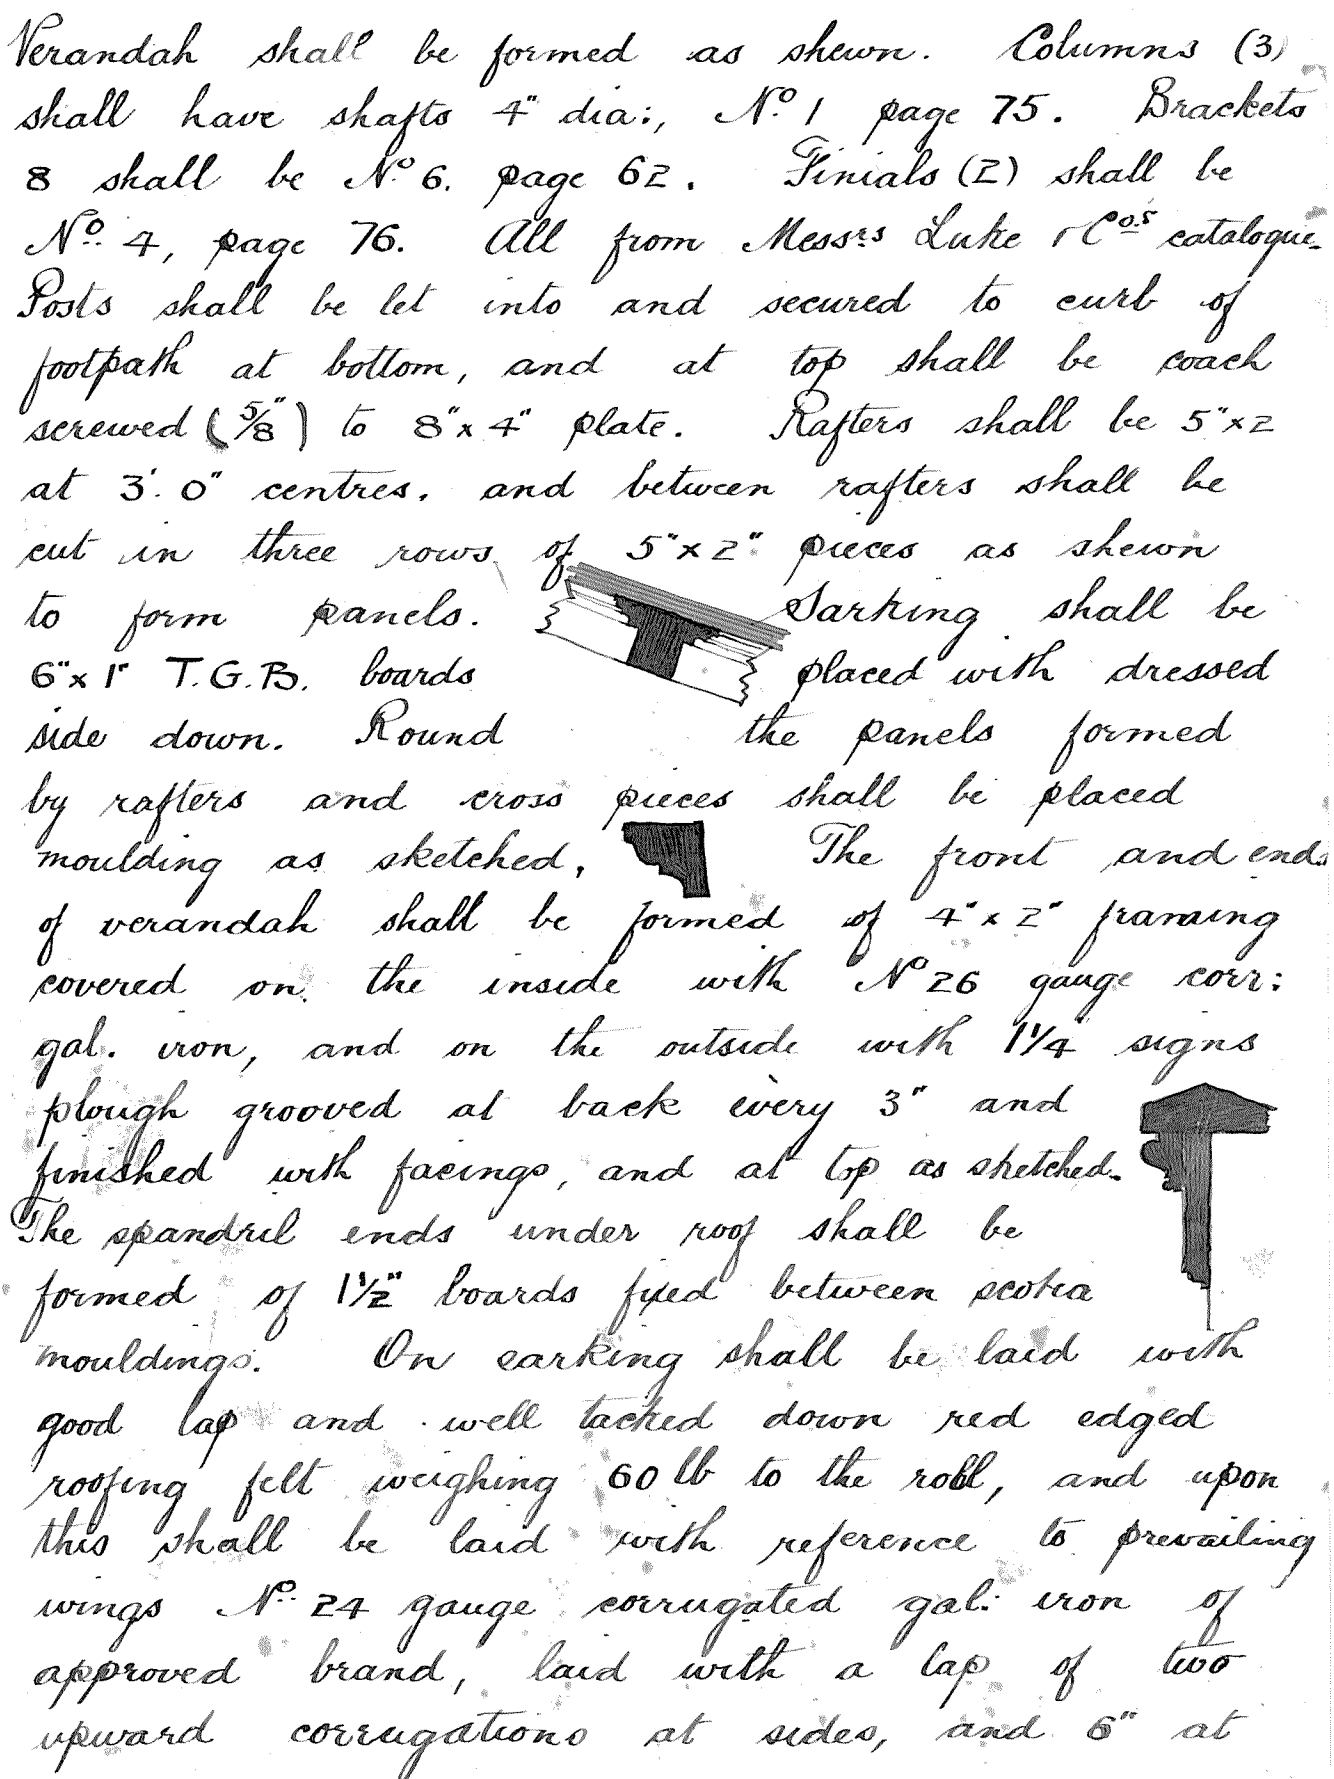 Verandah shall be formed as shewn. Columns (3)
shall have shafts 4" dia:, No. 1 page 75. Brackets
8 shall be No. 6. page 62. Finials (2) shall be
No. 4, page 76. All from Messrs Luke & Co.s catalogue.
Posts shall be let into and secured to curb of
footpath at bottom, and at top shall be coach
screwed (5/8") to 8" x 4" plate. Rafters shall be 5" x 2
at 3'. 0" centres. and between rafters shall be
cut in three rows of 5" x 2" pieces as shewn
to form panels. Sarking shall be
6" x 1" T.G.B. boards placed with dressed
side down. Round the panels formed
by rafters and cross pieces shall be placed
moulding as sketched. The front and ends
of verandah shall be formed of 4" x 2" framing
covered on the inside with No 26 gauge corr:
gal. iron, and on the outside with 1 1/4 signs
plough grooved at back every 3" and
finished with facings, and at top as sketched.
The spandril ends under roof shall be
formed of 1 1/2" boards fixed between scotia
mouldings. On sarking shall be laid with
good lap and well tacked down red edged
roofing felt weighing 60 lb to the roll, and upon
this shall be laid with reference to prevailing
wings No. 24 gauge corrugated gal: iron of
approved brand, laid with a lap of two
upward corrugations at sides, and 6" at